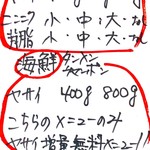 ニンニク 小・中・大・なし
背脂 小・中・大・なし
海鮮 タンメン
チャンポン
ヤサイ 400g 800g
こちらのメニューのみ
ヤサイ増量無料メニュー!